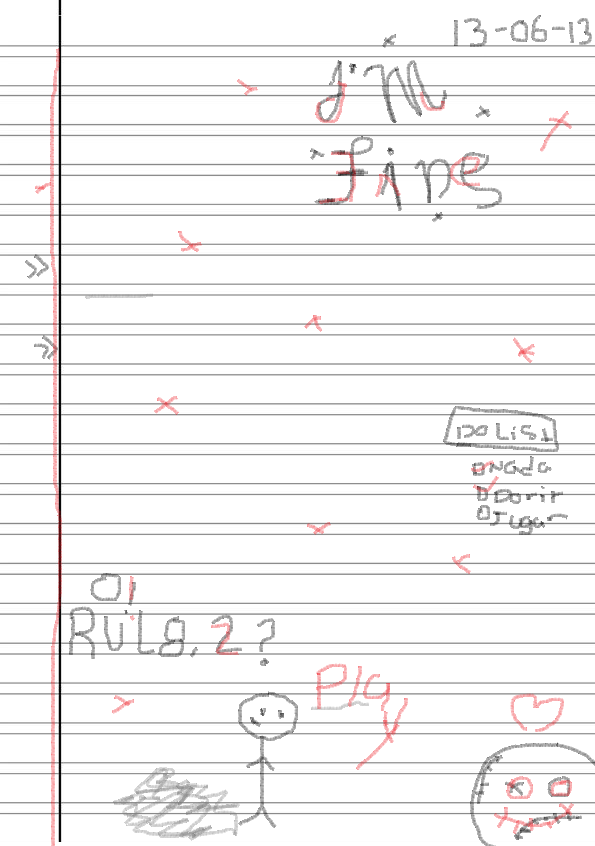 13-06-13
I'm
fine
DO LIST
Nada
Dorir
Jugar
O!
RULE.2?
Play